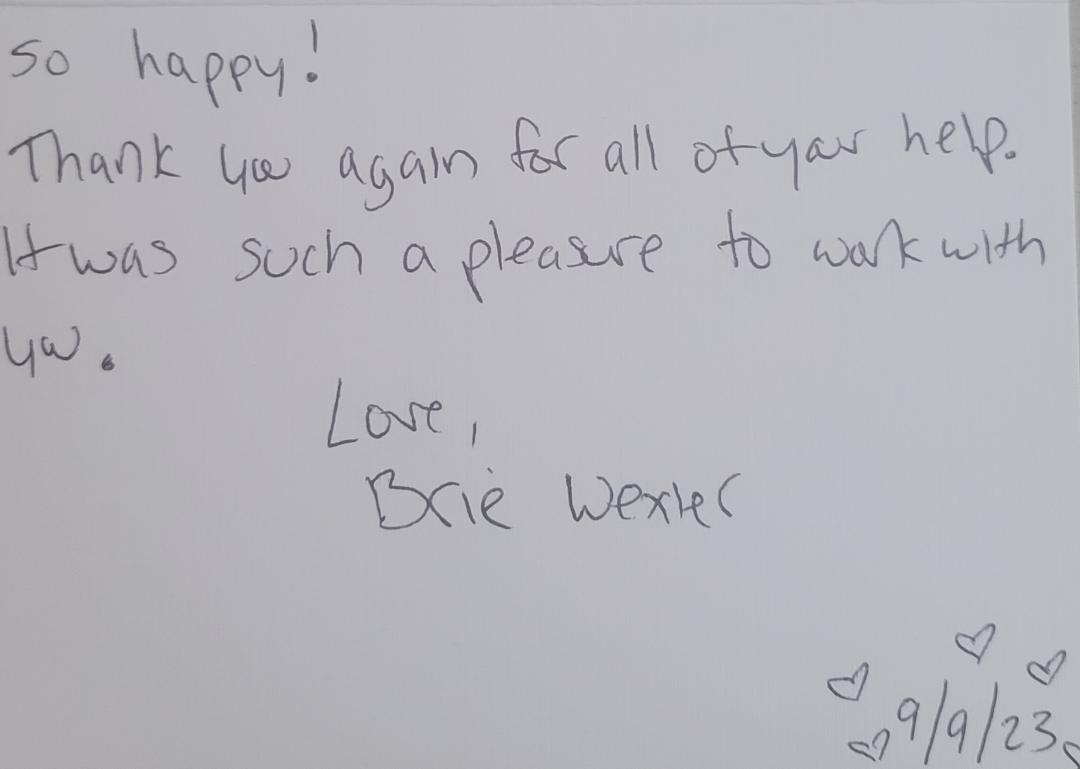 so happy!
Thank you again for all of your help.
It was such a pleasure to work with
you.
Love,
Brie Wexler
9/9/23